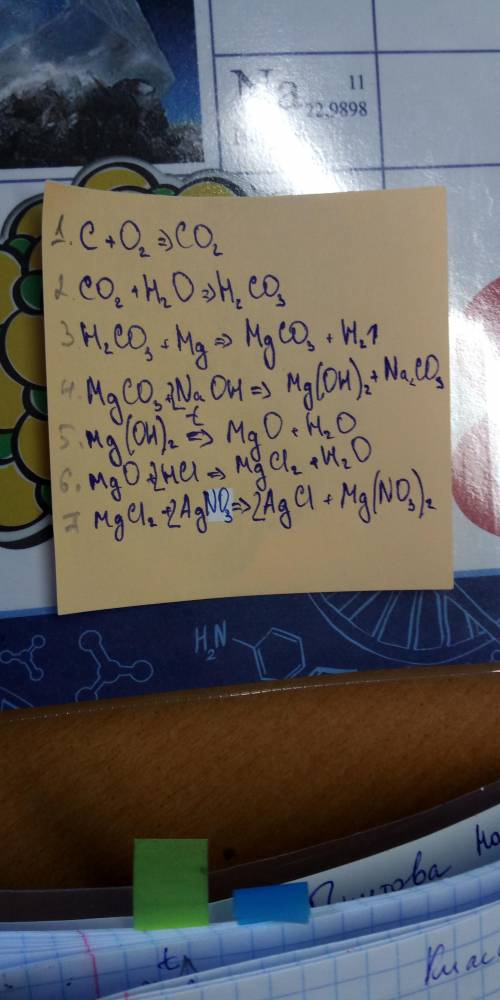 Na 11
22,9898
1. C + O₂ ⇒ CO₂
2. CO₂ + H₂O ⇒ H₂CO₃
3 H₂CO₃ + Mg ⇒ MgCO₃ + H₂↑
4. MgCO₃ + 2NaOH ⇒ Mg(OH)₂ + Na₂CO₃
5. Mg(OH)₂ t⇒ MgO + H₂O
6. MgO + 2HCl ⇒ MgCl₂ + H₂O
7. MgCl₂ + 2AgNO₃ ⇒ 2AgCl + Mg(NO₃)₂
H₂N